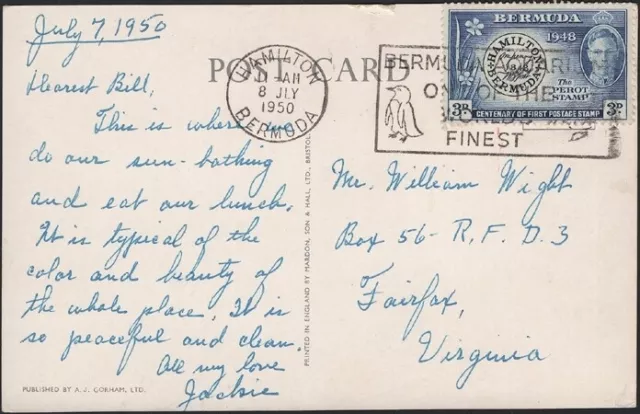 July 7, 1950
POST CARD
Dearest Bill,
This is where we
do our sun-bathing
and eat our lunch.
It is typical of the
color and beauty of
the whole place, It is
so peaceful and clean.
All my love
Jackie
PUBLISHED BY A.J. GORHAM, LTD.
PRINTED IN ENGLAND BY MARDON, SON & HALL, LTD., BRISTOL
HAMILTON
AM
8 JLY
1950
BERMUDA
BERMUDA
ONE OF THE
FINEST
BERMUDA
1948
HAMILTON
BERMUDA
The
PEROT
STAMP
3D 3D
CENTENARY OF FIRST POSTAGE STAMP
Mr. William Wight
Box 56- R.F.D.3
Fairfax,
Virginia